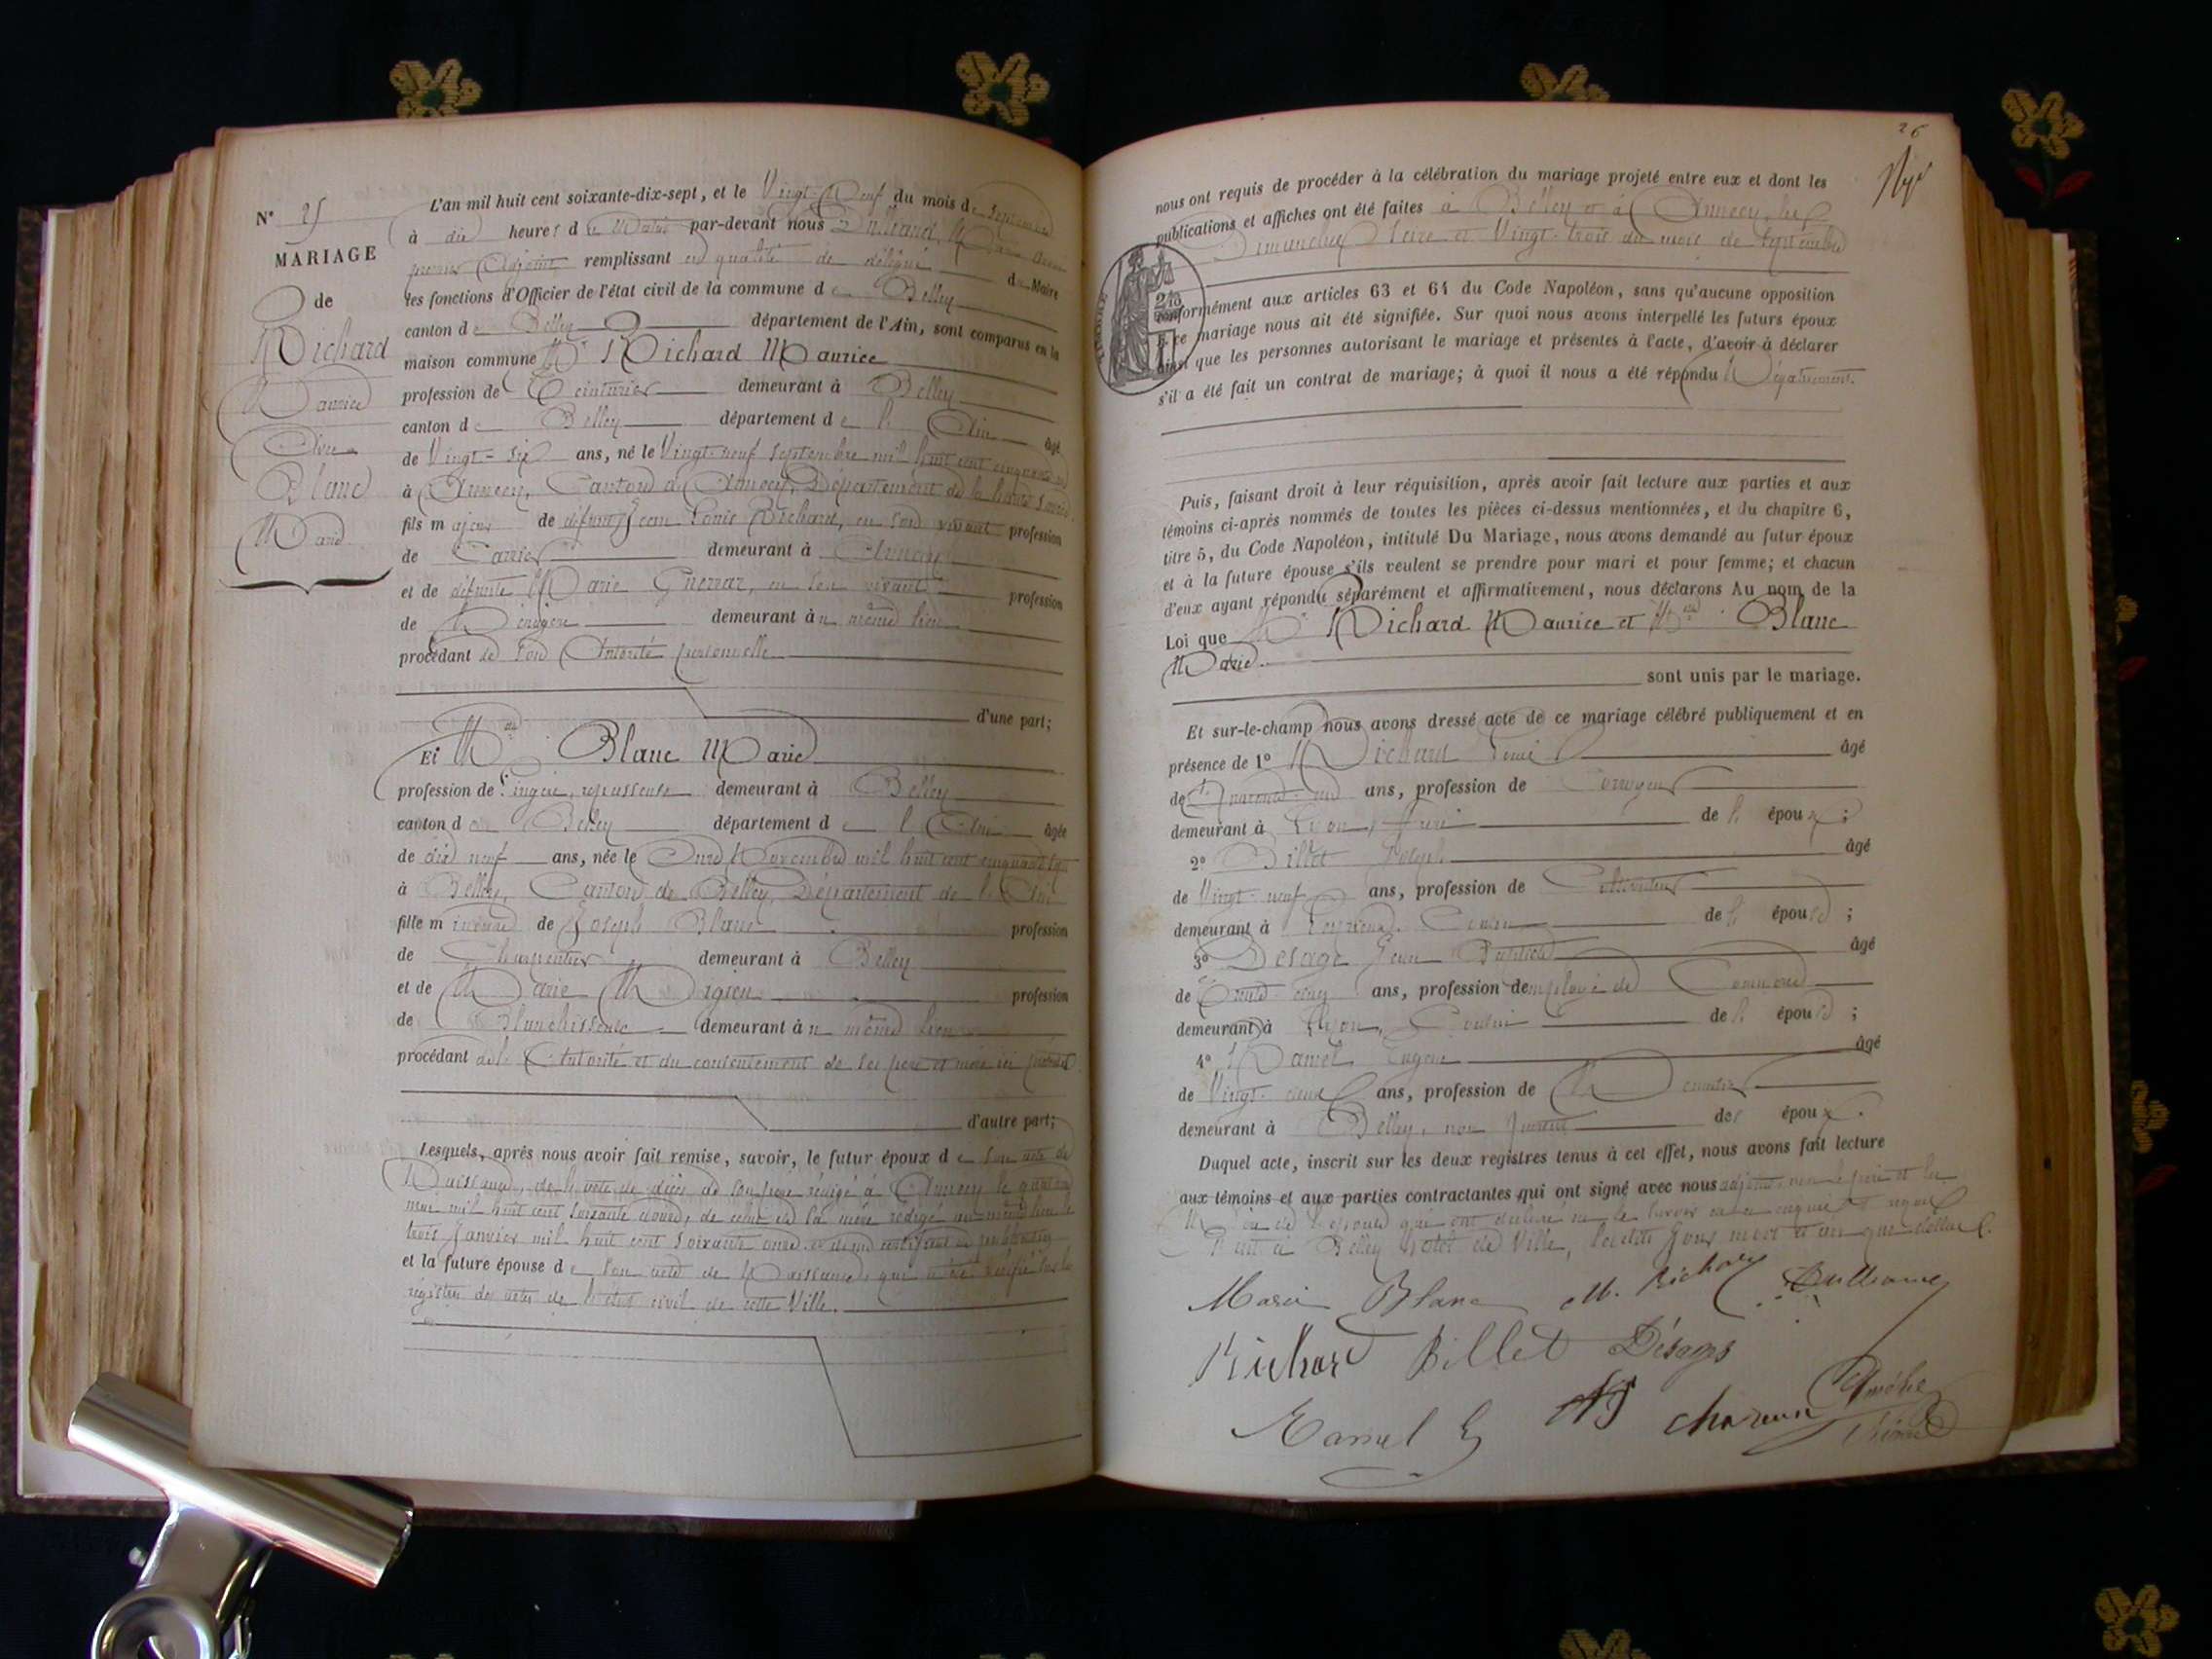 N° 25
MARIAGE
de
Richard
Maurice
Avec
Blanc
Marie
L'an mil huit cent soixante-dix-sept, et le Vingt-Neuf du mois de Septembre
à dix heures du Matin par-devant nous
premier Adjoint remplissant en qualité de délégué du Maire
les fonctions d'Officier de l'état civil de la commune de Belley
canton de Belley département de l'Ain, sont comparus en la
maison commune Mr Richard Maurice
profession de demeurant à Belley
canton de Belley département de l'Ain âgé
de Vingt-six ans, né le Vingt-neuf Septembre mil huit cent cinquante
à Annecy, Canton d'Annecy, Département de la haute Savoie
fils majeur de défunt Jean Louis Richard, en son vivant profession
de demeurant à Annecy
et de défunte Marie en son vivant profession
de Ménagère demeurant à même lieu
procédant de son Autorité personnelle
d'une part;
Et Mlle Blanc Marie
profession de Lingère, repasseuse demeurant à Belley
canton de Belley département de l'Ain âgée
de dix neuf ans, née le Onze Novembre mil huit cent cinquante sept
à Belley, Canton de Belley, Département de l'Ain
fille mineure de Joseph Blanc profession
de Charpentier demeurant à Belley
et de Marie profession
de Blanchisseuse demeurant à même lieu
procédant de l'Autorité et du consentement de ses père et mère ici présents
d'autre part;
Lesquels, après nous avoir fait remise, savoir, le futur époux de son acte de
Naissance, de l'acte de décès de son père rédigé à Annecy le
mai mil huit cent soixante douze, de celui de sa mère rédigé au même lieu le
trois Janvier mil huit cent soixante onze et d'un certificat de publication
et la future épouse de son acte de Naissance, qui a été vérifié sur le
registre des actes de l'état civil de cette Ville.
26
nous ont requis de procéder à la célébration du mariage projeté entre eux et dont les
publications et affiches ont été faites à Belley et à Annecy, les
Dimanches Seize et Vingt-trois du mois de Septembre
conformément aux articles 63 et 64 du Code Napoléon, sans qu'aucune opposition
à ce mariage nous ait été signifiée. Sur quoi nous avons interpellé les futurs époux
ainsi que les personnes autorisant le mariage et présentes à l'acte, d'avoir à déclarer
s'il a été fait un contrat de mariage; à quoi il nous a été répondu Négativement.
Puis, faisant droit à leur réquisition, après avoir fait lecture aux parties et aux
témoins ci-après nommés de toutes les pièces ci-dessus mentionnées, et du chapitre 6,
titre 5, du Code Napoléon, intitulé Du Mariage, nous avons demandé au futur époux
et à la future épouse s'ils veulent se prendre pour mari et pour femme; et chacun
d'eux ayant répondu séparément et affirmativement, nous déclarons Au nom de la
Loi que Mr Richard Maurice et Mlle Blanc
Marie.
sont unis par le mariage.
Et sur-le-champ nous avons dressé acte de ce mariage célébré publiquement et en
présence de 1° Richard Louis âgé
de ans, profession de
demeurant à Lyon, frère de l'époux;
2° Billet Joseph âgé
de Vingt-neuf ans, profession de Cultivateur
demeurant à Cousin de l'épouse;
3° Desage Jean Baptiste âgé
de Trente cinq ans, profession d'employé de Commerce
demeurant à Lyon, Cousin de l'épouse;
4° Ramel Eugène âgé
de Vingt-deux ans, profession de
demeurant à Belley, non parent des époux.
Duquel acte, inscrit sur les deux registres tenus à cet effet, nous avons fait lecture
aux témoins et aux parties contractantes qui ont signé avec nous adjoint, non le père et la
Mère de l'épouse qui ont déclaré ne le savoir de ce enquis et requis
Fait à Belley hôtel de Ville, lesdits Jour, mois et an que dessus.
Marie Blanc M. Richard
Richard Billet Désage
Ramel E